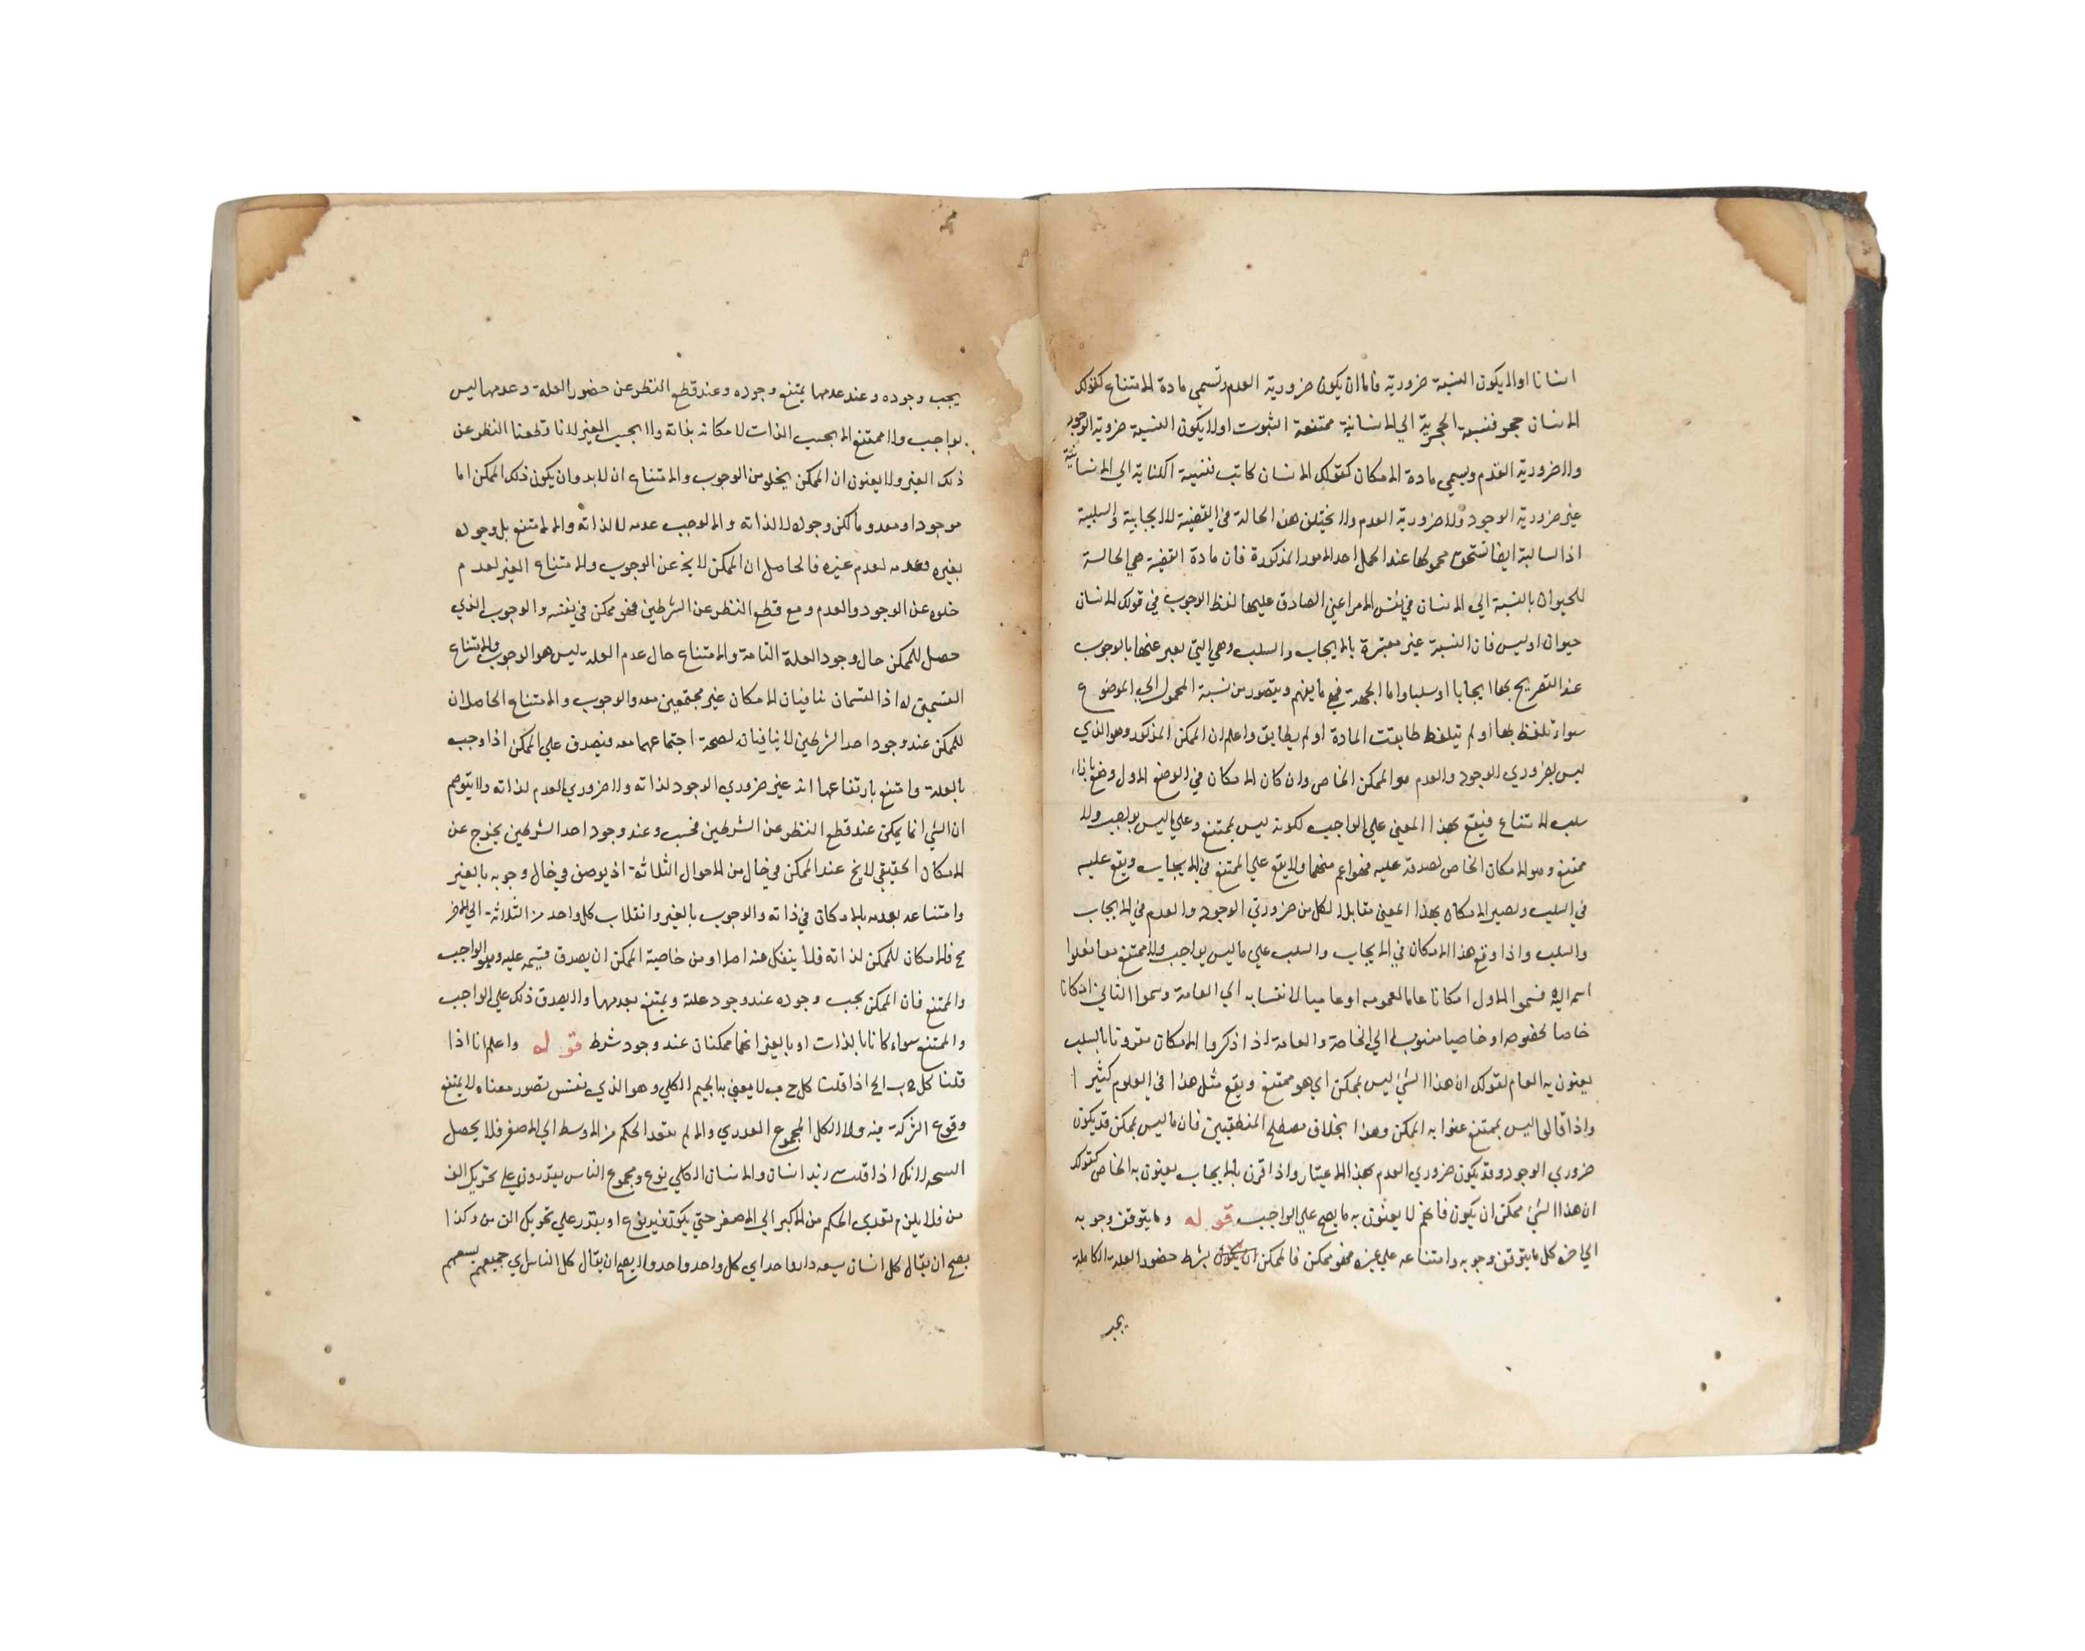 انسانا او لا يكون النسبة ضرورية فاما ان يكون ضرورية العدم وتسمي مادة الامتناع كقولك
الانسان حجر فنسبة الحجرية الي الانسانية ممتنعة الثبوت او لا يكون النسبة ضرورية الوجود
ولا ضرورية العدم ويسمي مادة الامكان كقولك الانسان كاتب فنسبة الكتابة الي الانسانية
غير ضرورية الوجود ولا ضرورية العدم ولا يختلف هذه الحالة في القضية الايجابية والسلبية
اذ السالبة ايضا تستحق محمولها عند الحمل احد الامور المذكورة فان مادة القضية هي الحالة
للحيوان بالنسبة الي الانسان في نفس الامر اعني الصادق عليها لفظ الوجوب في قولك الانسان
حيوان او ليس فان النسبة غير معتبرة بالايجاب والسلب وهي التي يعبر عنها بالوجوب
عند التصريح بها ايجابا او سلبا واما الجهة فهي ما يفهم ويتصور من نسبة المحمول الي الموضوع
سواء تلفظ بها او لم يتلفظ طابقت المادة او لم يطابق واعلم ان الممكن المذكور وهو الذي
ليس بضروري الوجود والعدم هو الممكن الخاص وان كان الامكان في الوضع الاول وضع بازاء
سلب الامتناع فيقع بهذا المعني علي الواجب لكونه ليس بممتنع وعلي ما ليس بواجب ولا
ممتنع وهو الامكان الخاص لصدقه عليه فهو اعم منهما ولا يقع علي الممتنع في الايجاب ويقع عليه
في السلب ويصير الامكان بهذا المعني مقابلا لكل من ضرورتي الوجود والعدم في الايجاب
والسلب واذا وقع هذا الامكان في الايجاب والسلب علي ما ليس بواجب ولا ممتنع معا نقلوا
اسمه اليه فسموا الاول امكانا عاما لعمومه او عاميا لانتسابه الي العامة وسموا الثاني امكانا
خاصا لخصوصه او خاصيا منسوب الي الخاصة والعامة اذا ذكروا الامكان مقرونا بالسلب
يعنون به العام كقولك ان هذا الشيء ليس بممكن اي هو ممتنع ويقع مثل هذا في العلوم كثيرا
واذا قالوا ليس بممتنع عنوا به الممكن وهذا بخلاف مصطلح المنطقيين فان ما ليس بممكن قد يكون
ضروري الوجود وقد يكون ضروري العدم بهذا الاعتبار واذا قرن بالايجاب يعنون به الخاص كقولك
ان هذا الشيء ممكن ان يكون فانهم لا يعنون به ما يصح علي الواجب قوله وما يتوقف وجوبه
الي اخره كل ما يتوقف وجوبه وامتناعه علي غيره فهو ممكن فالممكن بشرط حضور العلة الكاملة
يجب
يجب وجوده وعند عدمها يمتنع وجوده وعند قطع النظر عن حضور العلة وعدمها ليس
بواجب ولا ممتنع لا بحسب الذات لامكانه بذاته ولا بحسب الغير لانا قطعنا النظر عن
ذلك الغير ولا يعنون ان الممكن يخلو من الوجوب والامتناع ان لا بد وان يكون ذلك الممكن اما
موجودا او معدوما لكن وجوده لا لذاته والا لوجب عدمه لا لذاته والا لامتنع بل وجوده
بغيره وعدمه لعدم غيره فالحاصل ان الممكن لا يخ عن الوجوب والامتناع الغير لعدم
خلوه عن الوجود والعدم ومع قطع النظر عن الشرطين فهو ممكن في نفسه والوجوب الذي
حصل للممكن حال وجود العلة التامة والامتناع حال عدم العلة ليس هو الوجوب والامتناع
القسيمين له اذ القسمان ينافيان الامكان غير مجتمعين معه والوجوب والامتناع الحاصلان
للممكن عند وجود احد الشرطين لا ينافيانه لصحة اجتماعهما معه فيصدق علي الممكن اذا وجب
بالعلة وامتنع بارتفاعها انه غير ضروري الوجود لذاته ولا ضروري العدم لذاته ولا يتوهم
ان الشي انما يمكن عند قطع النظر عن الشرطين فحسب وعند وجود احد الشرطين يخرج عن
الامكان الحقيقي لا يخ عند الممكن في حال من الاحوال الثلاثة اذ يوصف في حال وجوبه بالغير
وامتناعه بعدمه بالامكان في ذاته والوجوب بالغير وانقلاب كل واحد من الثلاثة الي الاخر
مح فالامكان للممكن لذاته فلا ينفك عنه اصلا ومن خاصية الممكن ان يصدق قسيمه عليه وهو الواجب
والممتنع فان الممكن يجب وجوده عند وجود علة ويمتنع بعدمها ولا يصدق ذلك علي الواجب
والممتنع سواء كانا بالذات او بالغير انهما ممكنان عند وجود شرط قوله واعلم انا اذا
قلنا كل ج ب الخ اذا قلت كل ج ب لا يعني به الجيم الكلي وهو الذي نفس تصور معناه لا يمنع
وقوع الشركة فيه ولا الكل المجموع العددي والا لم يتعد الحكم من الاوسط الي الاصغر فلا يحصل
لانك اذا قلت زيد انسان والانسان الكلي نوع ومجموع الناس يقدرون علي تحريك الف
من فلا يلزم تعدي الحكم من الاكبر الي الاصغر حتي يكون زيد نوع او يقدر علي تحريك الف من وكذا
يصح ان يقال كل انسان يسعه دار واحد اي كل واحد واحد ولا يصح ان يقال كل الناس اي جميعهم يسعهم